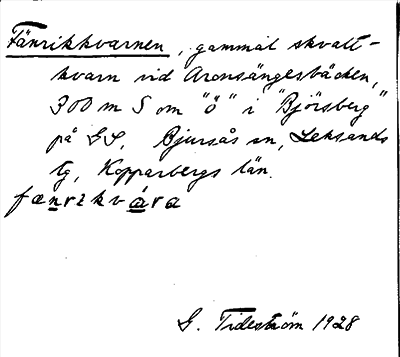 Fänrikkvarnen, gammal skvalt-
kvarn vid Aronsängesbäcken,
300 m S om "ö" i "Bjorsberg"
på GS, Bjursås sn, Leksands
tg, Kopparbergs län.
fænrikvára
G. Tideström 1928